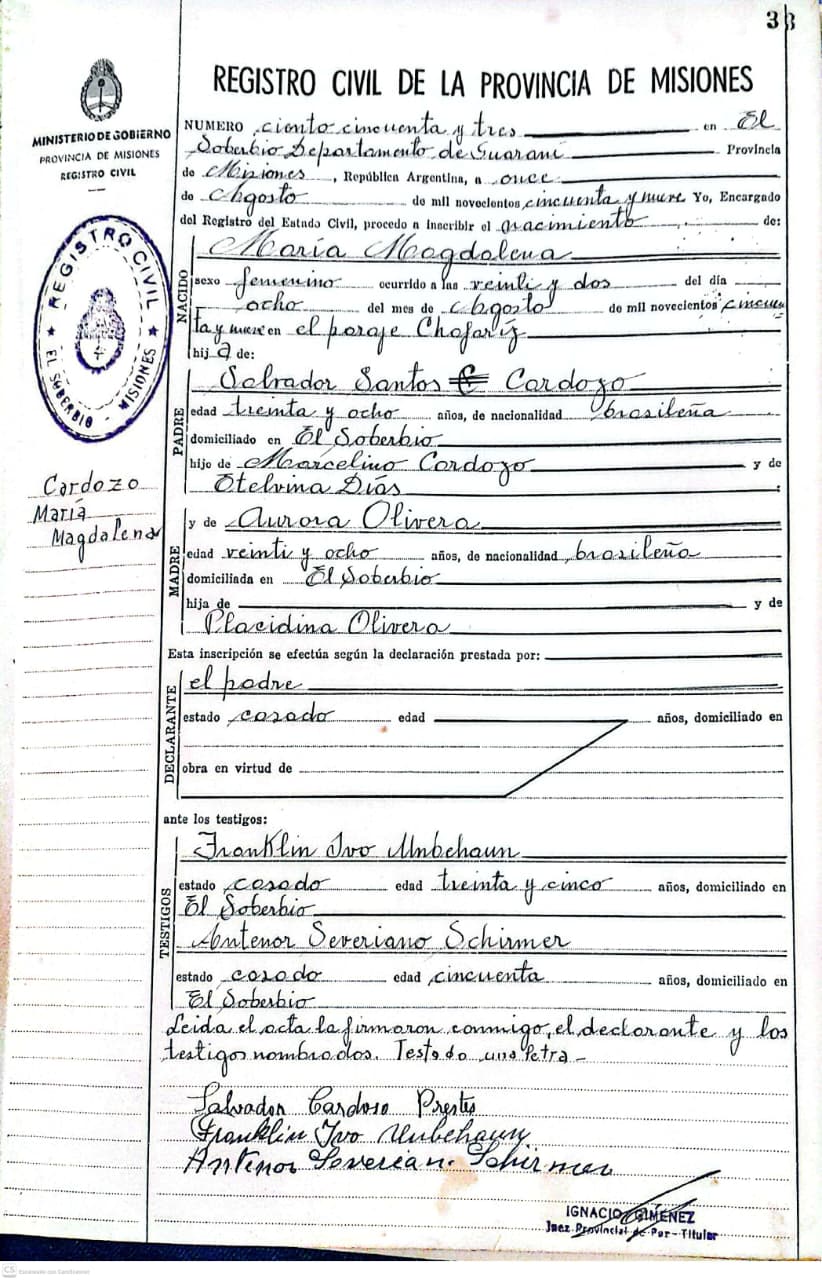 33
REGISTRO CIVIL DE LA PROVINCIA DE MISIONES
MINISTERIO DE GOBIERNO
PROVINCIA DE MISIONES
REGISTRO CIVIL
NUMERO ciento cincuenta y tres en El
Soberbio Departamento de Guaraní Provincia
de Misiones, República Argentina, a once
de Agosto de mil novecientos cincuenta y nueve Yo, Encargado
del Registro del Estado Civil, procedo a inscribir el nacimiento de:
NACIDO
María Magdalena
sexo femenino ocurrido a las veinti y dos del día
ocho del mes de Agosto de mil novecientos cincuen
ta y nueve en el paraje Chafaríz
hij a de:
REGISTRO CIVIL
EL SOBERBIO - MISIONES
PADRE
Salvador Santos C Cardozo
edad treinta y ocho años, de nacionalidad brasileña
domiciliado en El Soberbio
hijo de Marcelino Cardozo y de
Otelvina Días
Cardozo
María
Magdalena
MADRE
y de Aurora Olivera
edad veinti y ocho años, de nacionalidad brasileña
domiciliada en El Soberbio
hija de y de
Placidina Olivera
Esta inscripción se efectúa según la declaración prestada por:
DECLARANTE
el padre
estado casado edad años, domiciliado en
obra en virtud de
ante los testigos:
TESTIGOS
Franklin Ivo Unbehaun
estado casado edad treinta y cinco años, domiciliado en
El Soberbio
Antenor Severiano Schirmer
estado casado edad cincuenta años, domiciliado en
El Soberbio
Leida el acta la firmaron conmigo, el declarante y los
testigos nombrados. Testado una letra -
Salvador Cardoso Prestes
Franklin Ivo Unbehaun
Antenor Severiano Schirmer
IGNACIO GIMENEZ
Juez Provincial de Paz - Titular
CS Escaneado con CamScanner